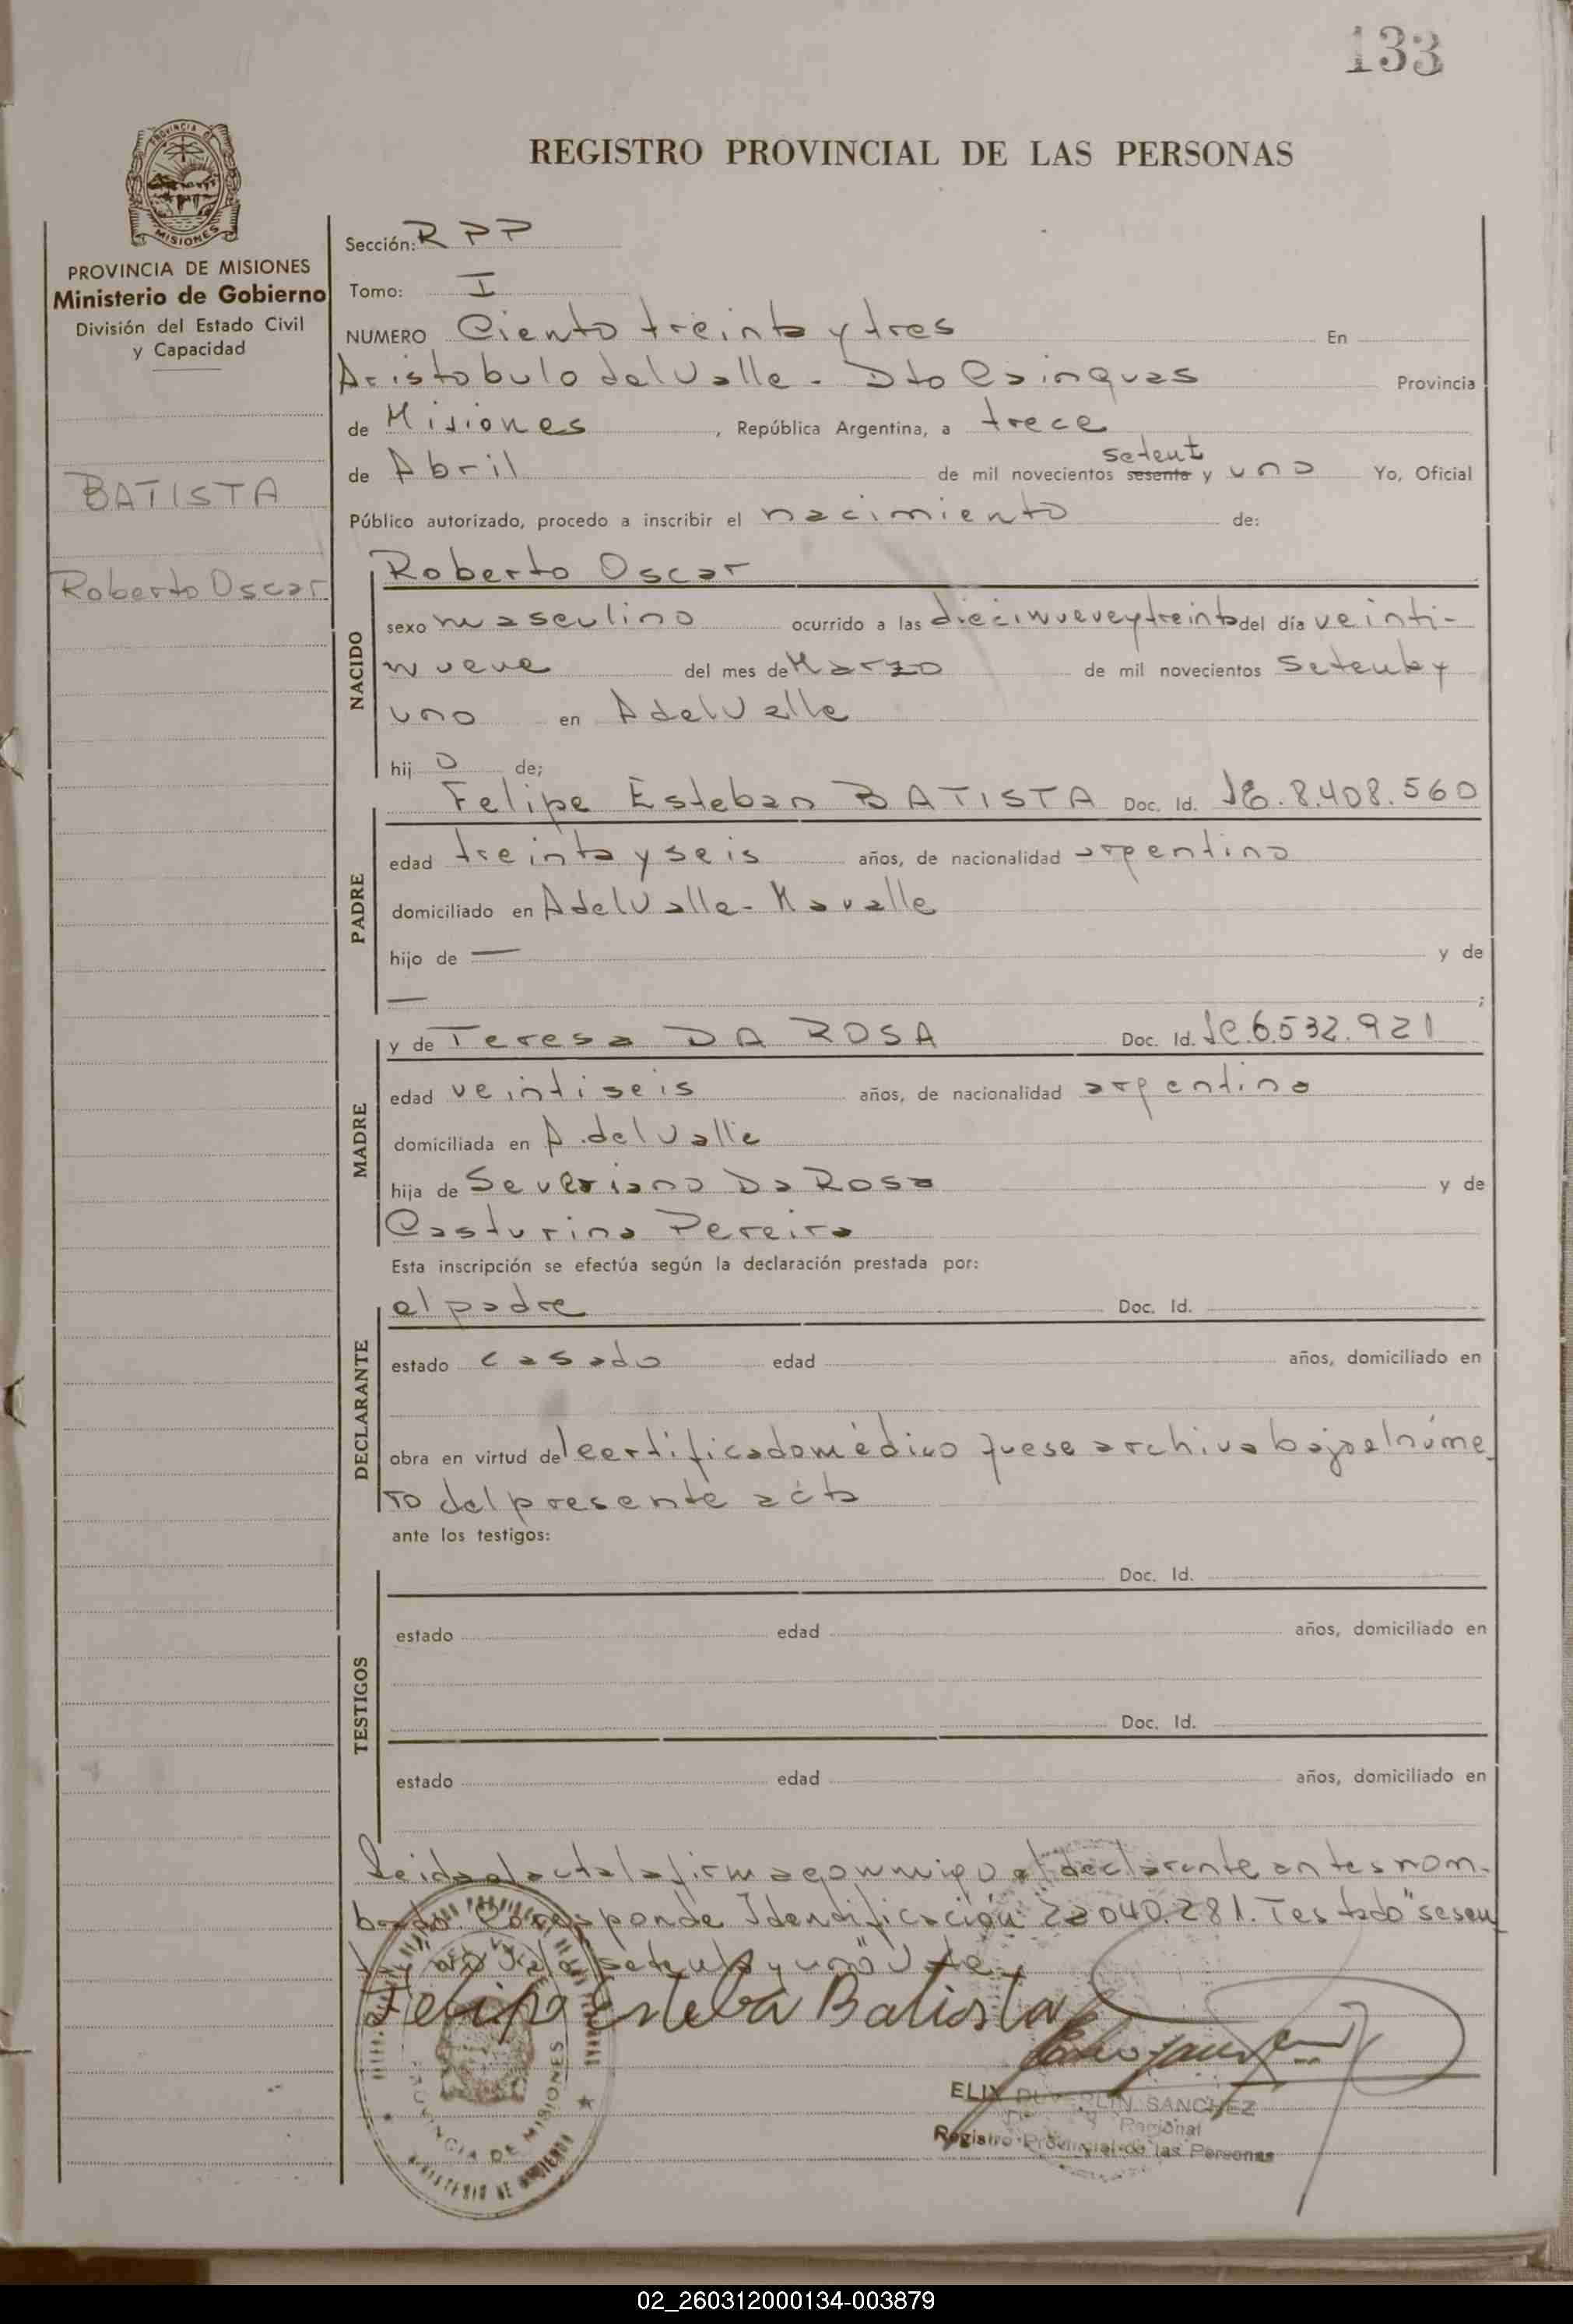 133
REGISTRO PROVINCIAL DE LAS PERSONAS
PROVINCIA DE MISIONES
Ministerio de Gobierno
División del Estado Civil
y Capacidad
BATISTA
Roberto Oscar
Sección: R P P
Tomo: I
NUMERO Ciento treinta y tres En
Aristobulo del Valle - Dto Cainguas Provincia
de Misiones, República Argentina, a trece
setent
de Abril de mil novecientos sesenta y uno Yo, Oficial
Público autorizado, procedo a inscribir el nacimiento de:
NACIDO
Roberto Oscar
sexo masculino ocurrido a las diecinueve y treinta del día veinti-
nueve del mes de Marzo de mil novecientos setenta y
uno en A del Valle
hij o de;
PADRE
Felipe Esteban BATISTA Doc. Id. 8.408.560
edad treinta y seis años, de nacionalidad argentina
domiciliado en A del Valle -
hijo de — y de
— ;
MADRE
y de Teresa DA ROSA Doc. Id. 6.532.921
edad veintiseis años, de nacionalidad argentina
domiciliada en A. del Valle
hija de Severiano Da Rosa y de
Casturina Pereira
Esta inscripción se efectúa según la declaración prestada por:
DECLARANTE
el padre Doc. Id.
estado casado edad años, domiciliado en
obra en virtud del certificado médico que se archiva bajo el núme
ro del presente acta
ante los testigos:
TESTIGOS
Doc. Id.
estado edad años, domiciliado en
Doc. Id.
estado edad años, domiciliado en
Leida el acta la firma conmigo el declarante antes nom-
brado. Corresponde Identificación 22040.281. Testado "sesen
setenta y uno" Vale
Felipe Esteba Batista
ELIX SANCHEZ
Regional
Registro Provincial de las Personas
PROVINCIA DE MISIONES
MINISTERIO DE GOBIERNO
02_260312000134-003879